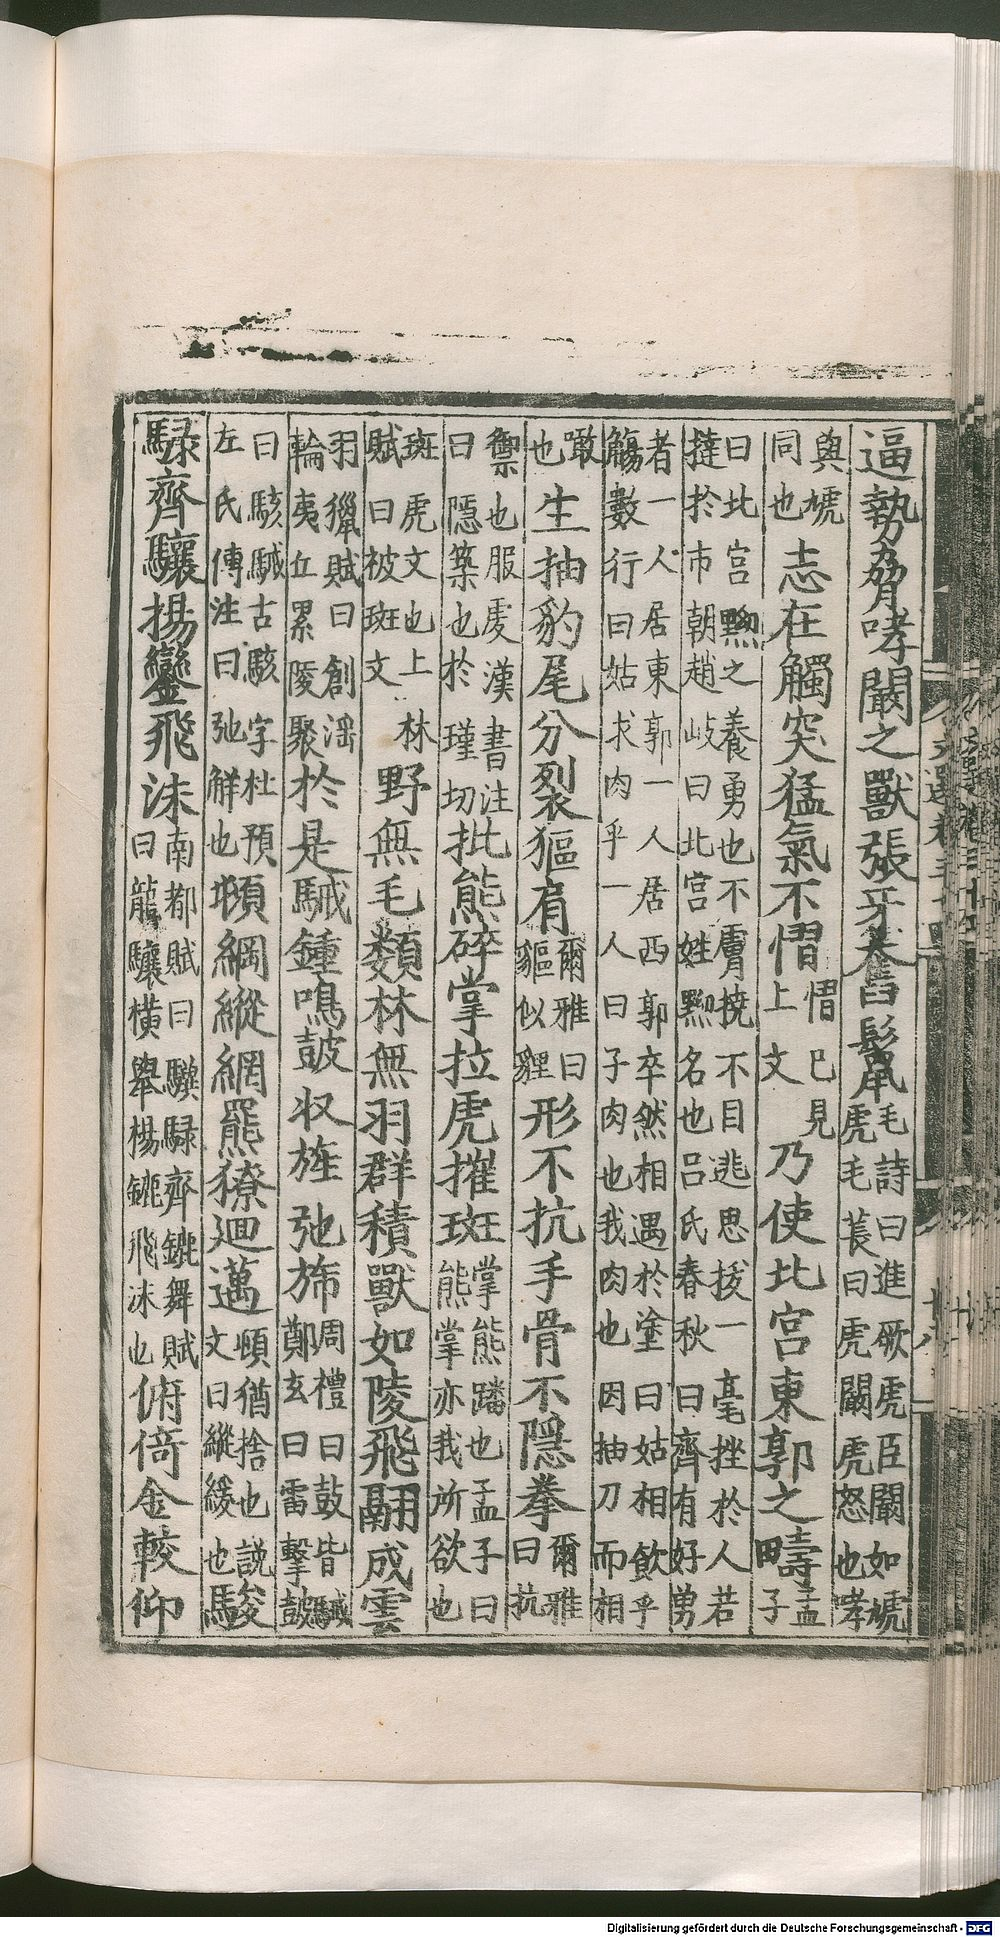 逼勢脅哮闞之獸張牙奮鬣毛詩曰進厥虎臣闞如虓虎毛萇曰虎闞虎怒也哮
與虓同也志在觸突猛氣不慴慴巳見上文乃使北宮東郭之疇孟子
曰北宮黝之養勇也不膚撓不目逃思拔一毫挫於人若撻於市朝趙岐曰北宮姓黝名也呂氏春秋曰齊有好勇
者一人居東郭一人居西郭卒然相遇於塗曰姑相飲乎觴數行曰姑求肉乎一人曰子肉也我肉也因抽刀而相
噉也生抽豹尾分裂貙肩爾雅曰貙似貍形不抗手骨不隱拳爾雅曰抗
禦也服虔漢書注曰隱築也於瑾切批熊碎掌拉虎摧斑掌熊蹯也孟子曰熊掌亦我所欲也
斑虎文也上林賦曰被斑文野無毛類林無羽群積獸如陵飛翮成雲
羽獵賦曰創淫輪夷丘累陵聚於是駴鍾鳴鼓収旌弛斾周禮曰鼓皆駴鄭玄曰雷擊鼓
曰駭駴古駭字杜預左氏傳注曰弛解也頓綱縱網羆獠迴邁頓猶捨也說文曰縱緩也駿
騄齊驤揚鑾飛沫南都賦曰騄驥齊鑣舞賦曰龍驤橫舉楊鑣飛沫也俯倚金較仰
Digitalisierung gefördert durch die Deutsche Forschungsgemeinschaft - DFG